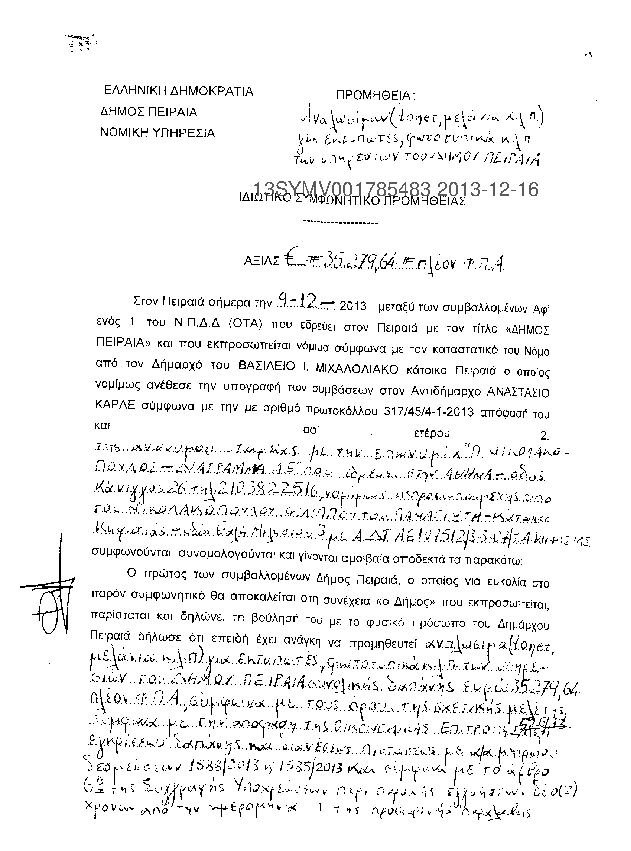 ΕΛΛΗΝΙΚΗ ΔΗΜΟΚΡΑΤΙΑ
ΔΗΜΟΣ ΠΕΙΡΑΙΑ
ΝΟΜΙΚΗ ΥΠΗΡΕΣΙΑ
ΠΡΟΜΗΘΕΙΑ:
Αναλωσίμων (τόνερ, μελάνια κ.λ.π.)
για εκτυπωτές, φωτοτυπικά κ.λ.π.
των υπηρεσιών ΤΟΥ ΔΗΜΟΥ ΠΕΙΡΑΙΑ
13SYMV001785483 2013-12-16
ΙΔΙΩΤΙΚΟ ΣΥΜΦΩΝΗΤΙΚΟ ΠΡΟΜΗΘΕΙΑΣ
-------------------
ΑΞΙΑΣ € =35.279,64 = πλέον Φ.Π.Α
Στον Πειραιά σήμερα την 9-12- 2013 μεταξύ των συμβαλλομένων Αφ'
ενός 1 του Ν.Π.Δ.Δ (ΟΤΑ) που εδρεύει στον Πειραιά με τον τίτλο «ΔΗΜΟΣ
ΠΕΙΡΑΙΑ» και που εκπροσωπείται νόμιμα σύμφωνα με τον καταστατικό του Νόμο
από τον Δήμαρχό του ΒΑΣΙΛΕΙΟ Ι. ΜΙΧΑΛΟΛΙΑΚΟ κάτοικο Πειραιά ο οποίος
νομίμως ανέθεσε την υπογραφή των συμβάσεων στον Αντιδήμαρχο ΑΝΑΣΤΑΣΙΟ
ΚΑΡΛΕ σύμφωνα με την με αριθμό πρωτοκόλλου 317/45/4-1-2013 απόφασή του
και αφ' ετέρου 2.
της ανώνυμου εταιρίας με την επωνυμία "Π. Νικολακο-
πουλος - ΔΙΑΓΡΑΜΜΑ ΑΕ" που εδρεύει στην ΑΘΗΝΑ - οδός
Κάνιγγος 26 τηλ 2103822516, νομίμως εκπροσωπουμένης από
τον ΝΙΚΟΛΑΚΟΠΟΥΛΟ ΦΙΛΙΠΠΟ του ΠΑΝΑΓΙΩΤΗ - κάτοικο
Κηφισιάς - οδός με ΑΔΤ
συμφωνούνται συνομολογούνται και γίνονται αμοιβαία αποδεκτά τα παρακάτω:
Ο πρώτος των συμβαλλομένων Δήμος Πειραιά, ο οποίος για ευκολία στο
παρόν συμφωνητικό θα αποκαλείται στη συνέχεια «ο Δήμος» που εκπροσωπείται,
παρίσταται και δηλώνει τη βούλησή του με το φυσικό πρόσωπο του Δημάρχου
Πειραιά δήλωσε ότι επειδή έχει ανάγκη να προμηθευτεί αναλώσιμα (τόνερ,
μελάνια κ.λ.π) για εκτυπωτές, φωτοτυπικά κ.λ.π των υπηρε-
σιών του ΔΗΜΟΥ ΠΕΙΡΑΙΑ συνολικής δαπάνης ευρώ 35.279,64
πλέον Φ.Π.Α, σύμφωνα με τους όρους της σχετικής μελέτης,
σύμφωνα με την απόφαση της Οικονομικής Επιτροπής
εγκρίσεως δαπάνης και διαθέσεως πιστώσεως με α/α μητρώου
δεσμεύσεων 1588/2013 & 1585/2013 και σύμφωνα με το άρθρο
6ο της Συγγραφής Υποχρεώσεων περί παροχής εγγυήσεων δύο (2)
χρόνων από την ημερομηνία 1 της προσωρινής παραλαβής